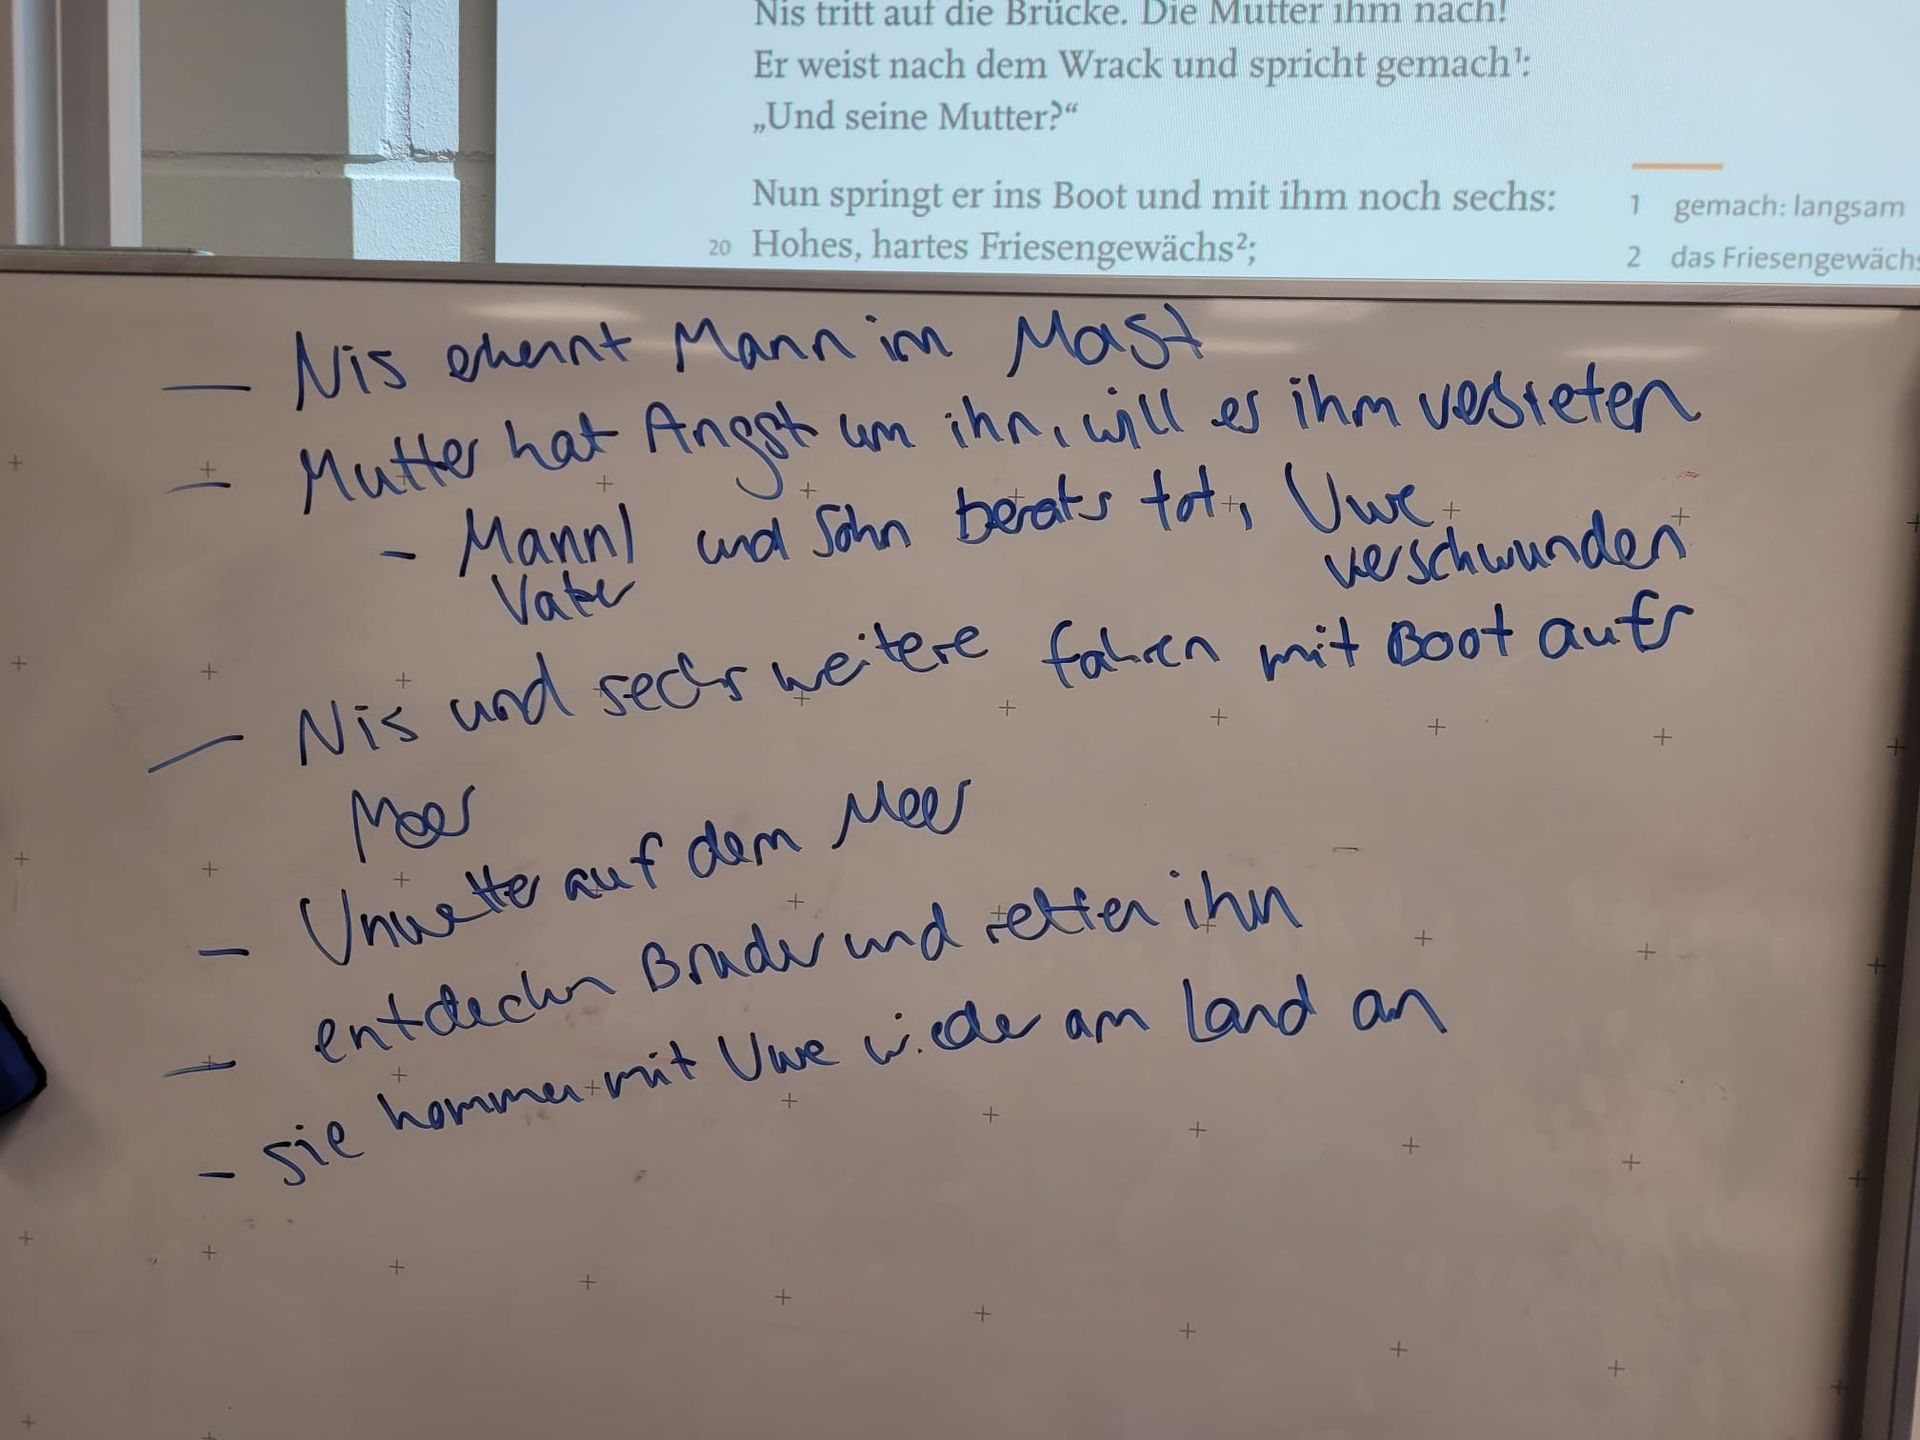 Nis tritt auf die Brücke. Die Mutter ihm nach!
Er weist nach dem Wrack und spricht gemach¹:
„Und seine Mutter?“
Nun springt er ins Boot und mit ihm noch sechs:
20 Hohes, hartes Friesengewächs²;
1 gemach: langsam
2 das Friesengewächs
— Nis erkennt Mann im Mast
— Mutter hat Angst um ihn, will es ihm verbieten
- Mann/ und Sohn bereits tot, Uwe
Vater verschwunden
— Nis und sechs weitere fahren mit Boot aufs
Meer
— Unwetter auf dem Meer
— entdecken Bruder und retten ihn
- sie kommen mit Uwe wieder am Land an